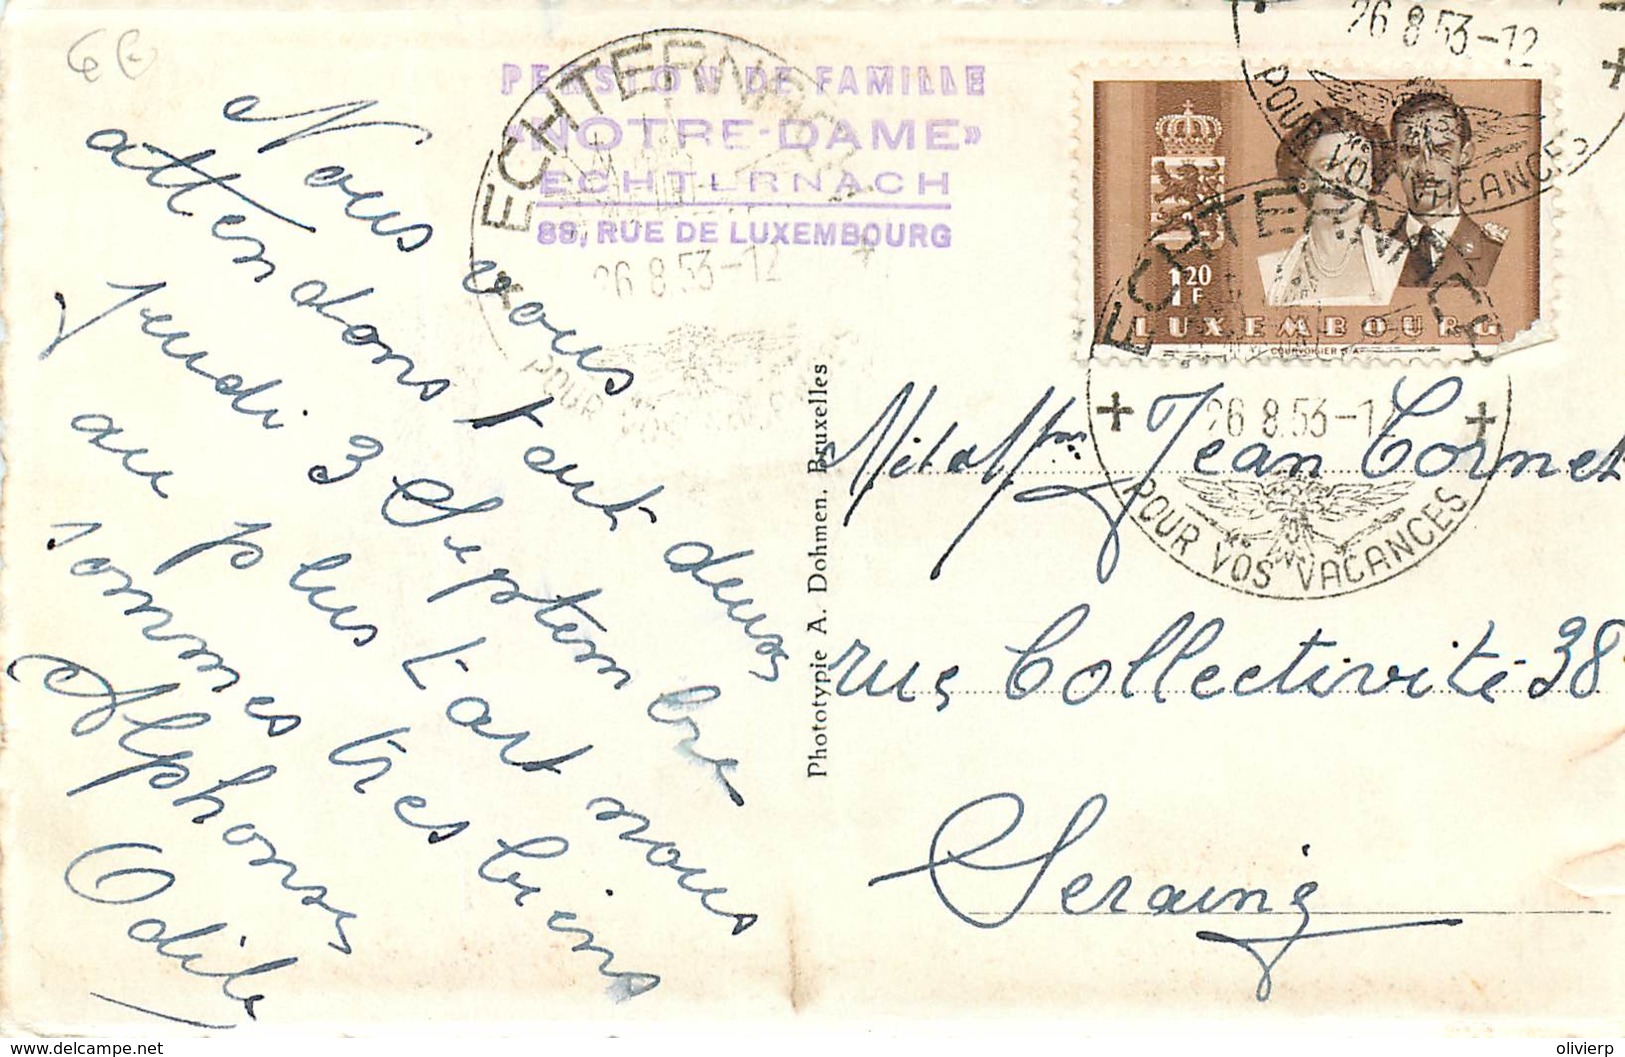 PENSION DE FAMILLE
«NOTRE-DAME»
ECHTERNACH
88, RUE DE LUXEMBOURG
ECHTERNACH
26.8.53-12
POUR VOS VACANCES
26.8.53-12
POUR VOS VACANCES
1,20 F
LUXEMBOURG
COURVOISIER S/A
ECHTERNACH
26.8.53-12
POUR VOS VACANCES
Nous vous
attendons tout deux
Jeudi 3 Septembre
au plus tart nous
sommes tres biens
Alphonse
Odile
Phototypie A. Dohmen, Bruxelles
Jean Cornet
rue Collectivité 38
Seraing
delcampe.net
olivierp